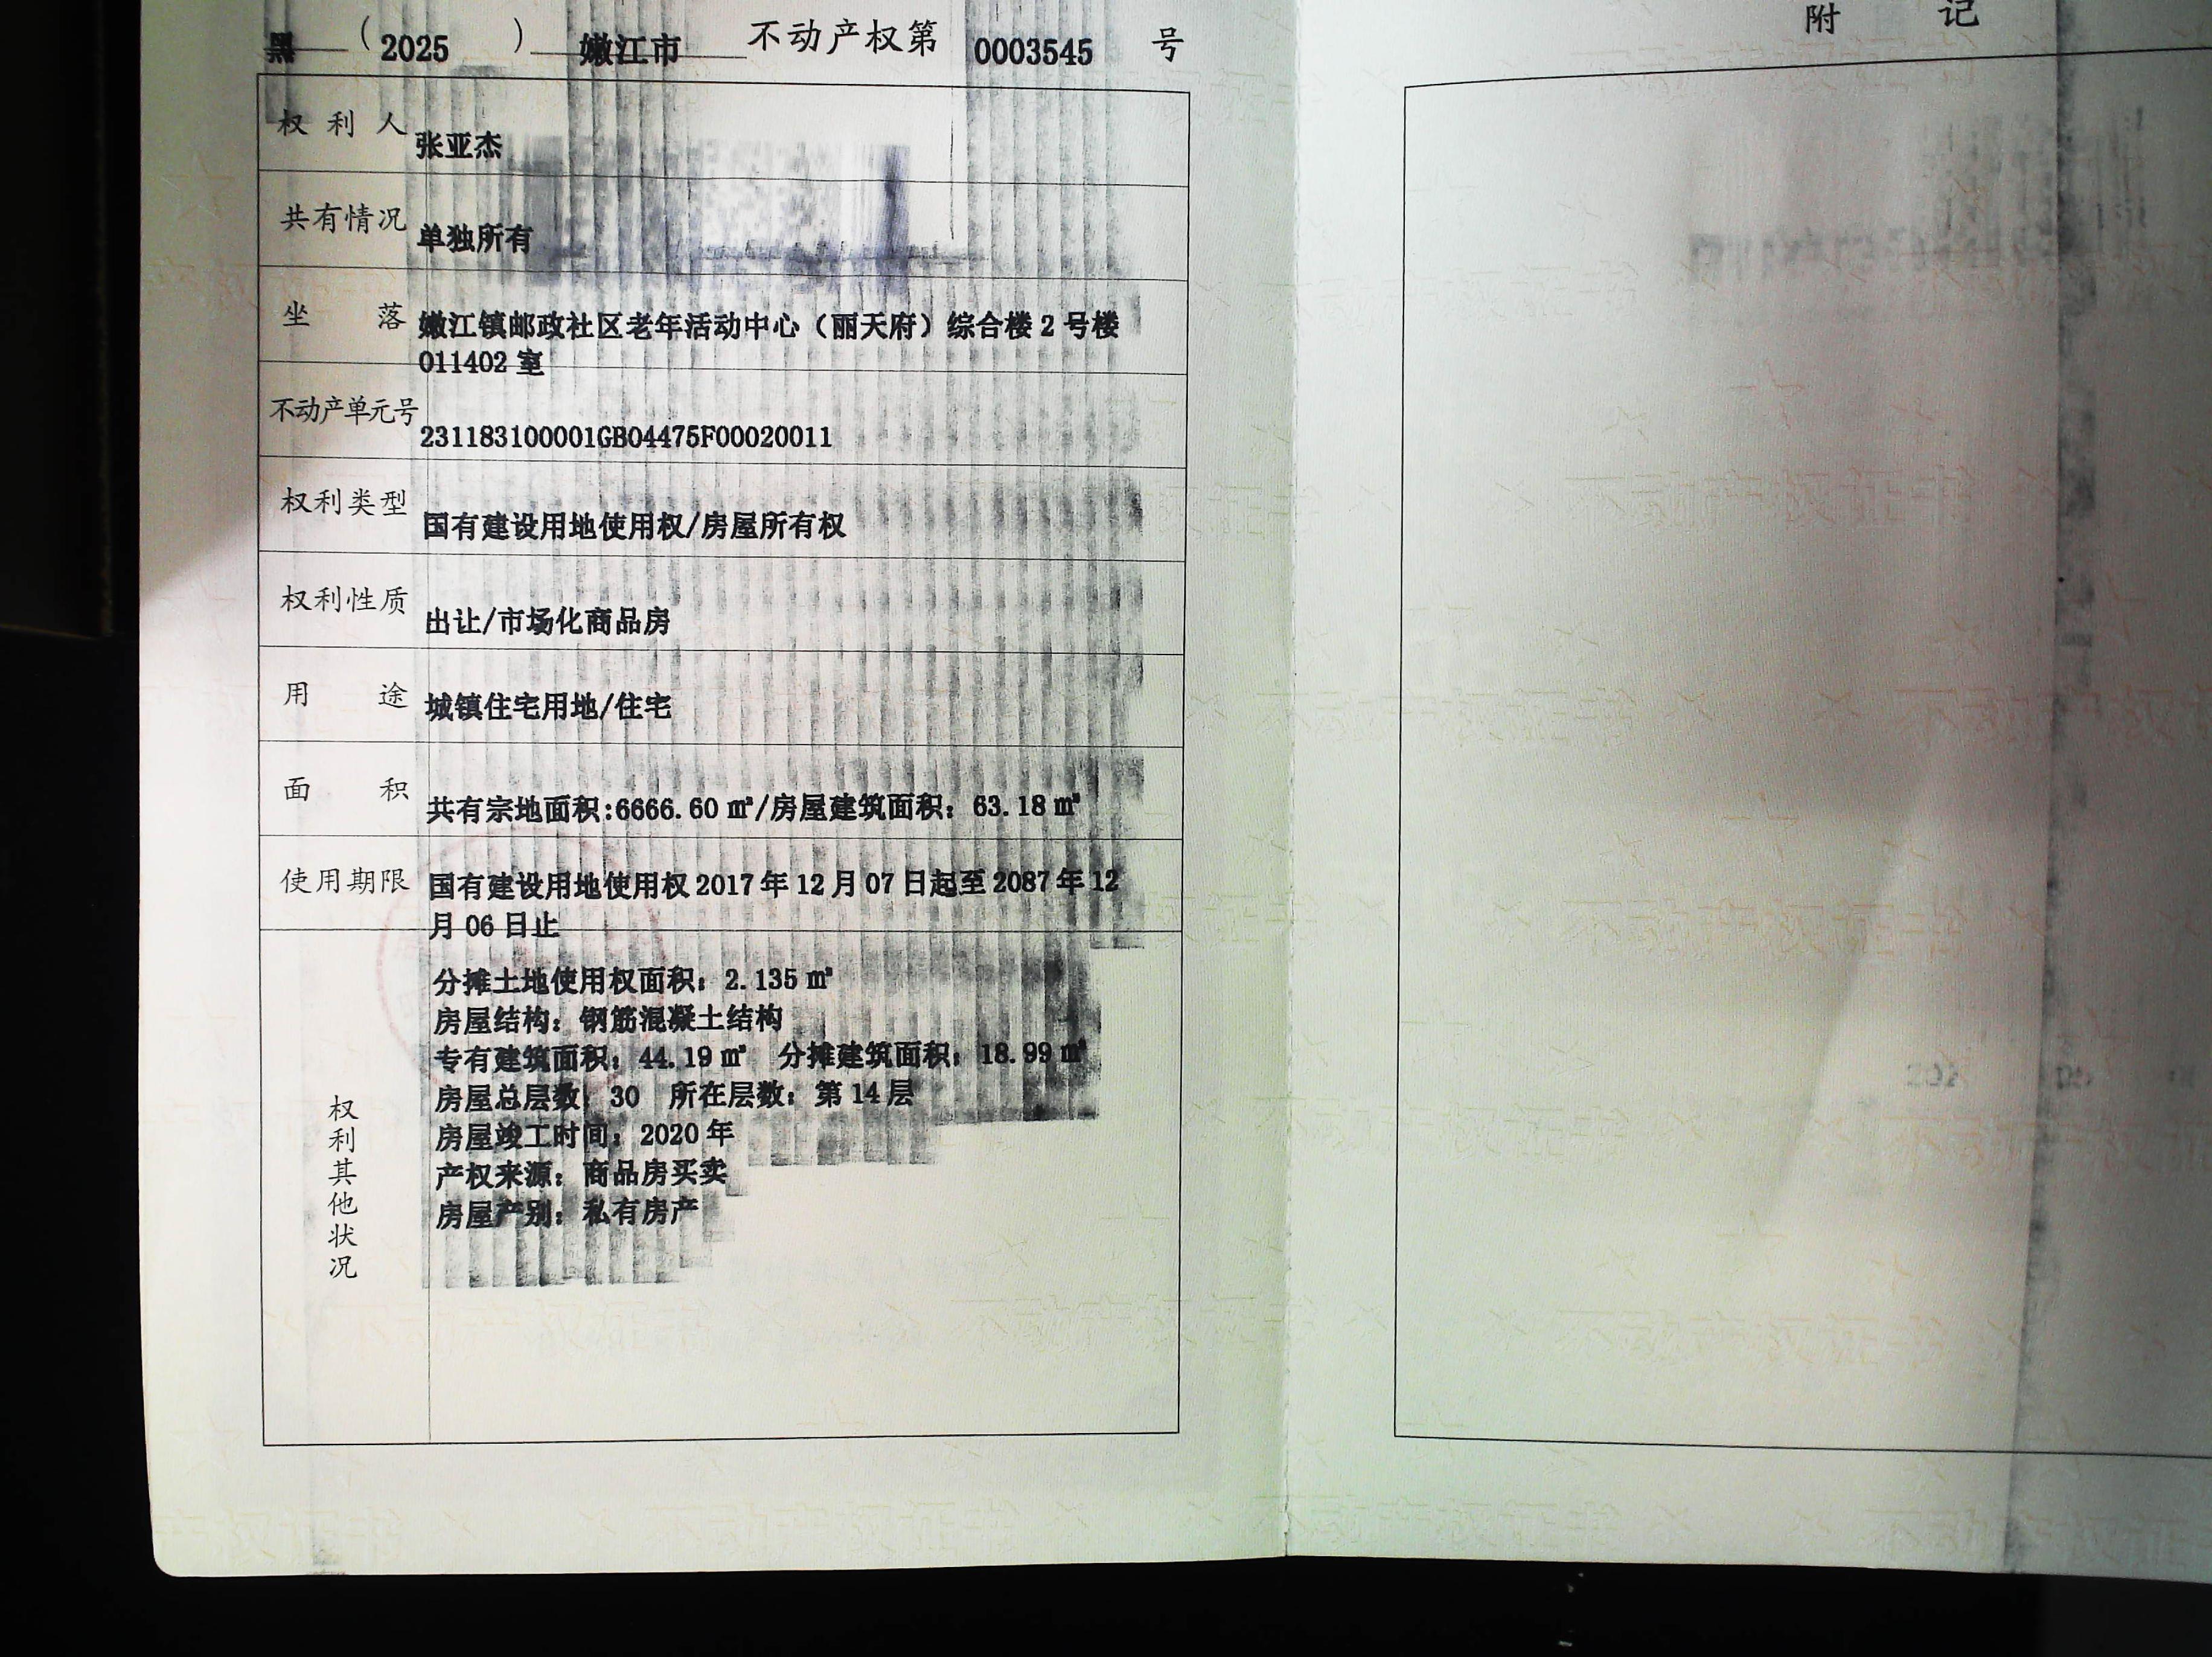 黑（2025）嫩江市 不动产权第 0003545 号
权利人 张亚杰
共有情况 单独所有
坐落 嫩江镇邮政社区老年活动中心（丽天府）综合楼 2 号楼
011402 室
不动产单元号 231183100001GB04475F00020011
权利类型 国有建设用地使用权/房屋所有权
权利性质 出让/市场化商品房
用途 城镇住宅用地/住宅
面积 共有宗地面积:6666.60 ㎡/房屋建筑面积：63.18 ㎡
使用期限 国有建设用地使用权 2017 年 12 月 07 日起至 2087 年 12
月 06 日止
权利其他状况
分摊土地使用权面积：2.135 ㎡
房屋结构：钢筋混凝土结构
专有建筑面积：44.19 ㎡ 分摊建筑面积：18.99 ㎡
房屋总层数：30 所在层数：第 14 层
房屋竣工时间：2020 年
产权来源：商品房买卖
房屋产别：私有房产
附 记